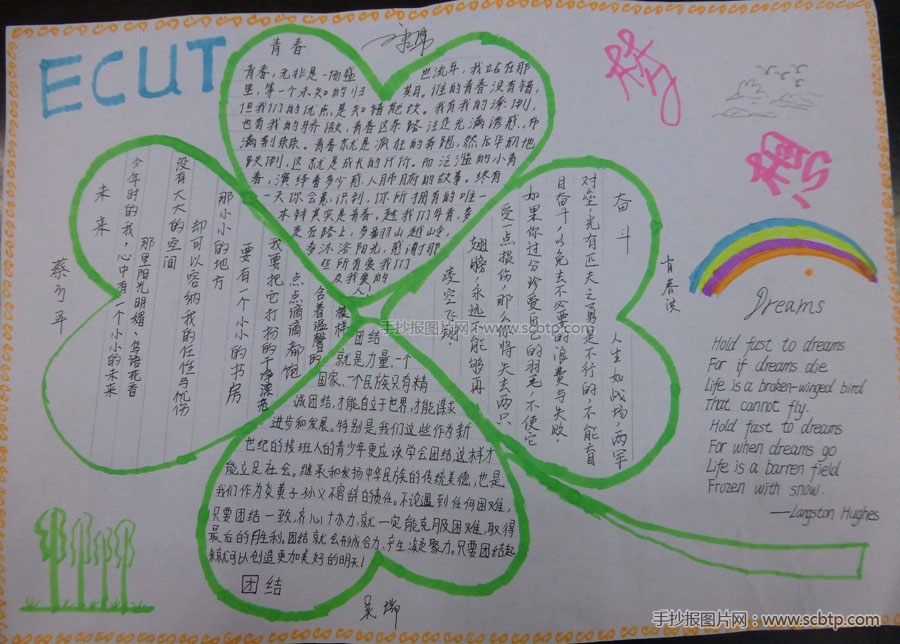 ECUT
青春
青春，无非是一场
巴流年，我站在那
里，等一个未知的归期。谁的青春没有错，
但我们的优点，是知错能改。我有我的
也有我的骄傲，青春这条路注定充满
青春，就是疯狂的奔跑，然后华丽地
跌倒，这就是成长的代价。
春，演绎着多少前人肺腑的故事。终有
一天你会意识到，你所拥有的唯一
本钱其实是青春。趁我们年青，多
走在路上，多翻羽山越山岭，
多沐浴阳光，感谢那
些所有爱我们
及我爱的
人！
梦
想
未来
今年时的我，心中有一个小小的未来
那里阳光明媚 鸟语花香
没有大大的空间
却可以容纳我的任性与忧伤
那小小的地方
要有一个小小的书房
我要把它打扮的干净漂亮
点点滴滴都饱
含着温馨的
模样
奋斗
人生如战场，两军
对垒，光有匹夫之勇是不行的，不能盲
目奋斗，以免去不必要的浪费与失败，
如果你过分珍爱自己的羽毛，不使它
受一点损伤，那么你将失去两只
翅膀，永远不能够再
凌空飞翔
团结
就是力量，一个
国家、一个民族只有精
诚团结，才能自立于世界，才能谋求
进步和发展。特别是我们这些作为新
世纪的接班人的青少年更应该学会团结这样才
能立足社会。继承和发扬中华民族的传统美德，也是
我们作为炎黄子孙义不容辞的责任。不论遇到任何困难，
只要团结一致，齐心协力，就一定能克服困难，取得
最后的胜利。团结就会形成合力，产生凝聚力。只要团结起
来就可以创造更加美好的明天！
团结
Dreams
Hold fast to dreams
For if dreams die
Life is a broken-winged bird
That cannot fly.
Hold fast to dreams
For when dreams go
Life is a barren field
Frozen with snow.
—Langston Hughes
手抄报图片网：www.scbtp.com
手抄报图片网：www.scbtp.com